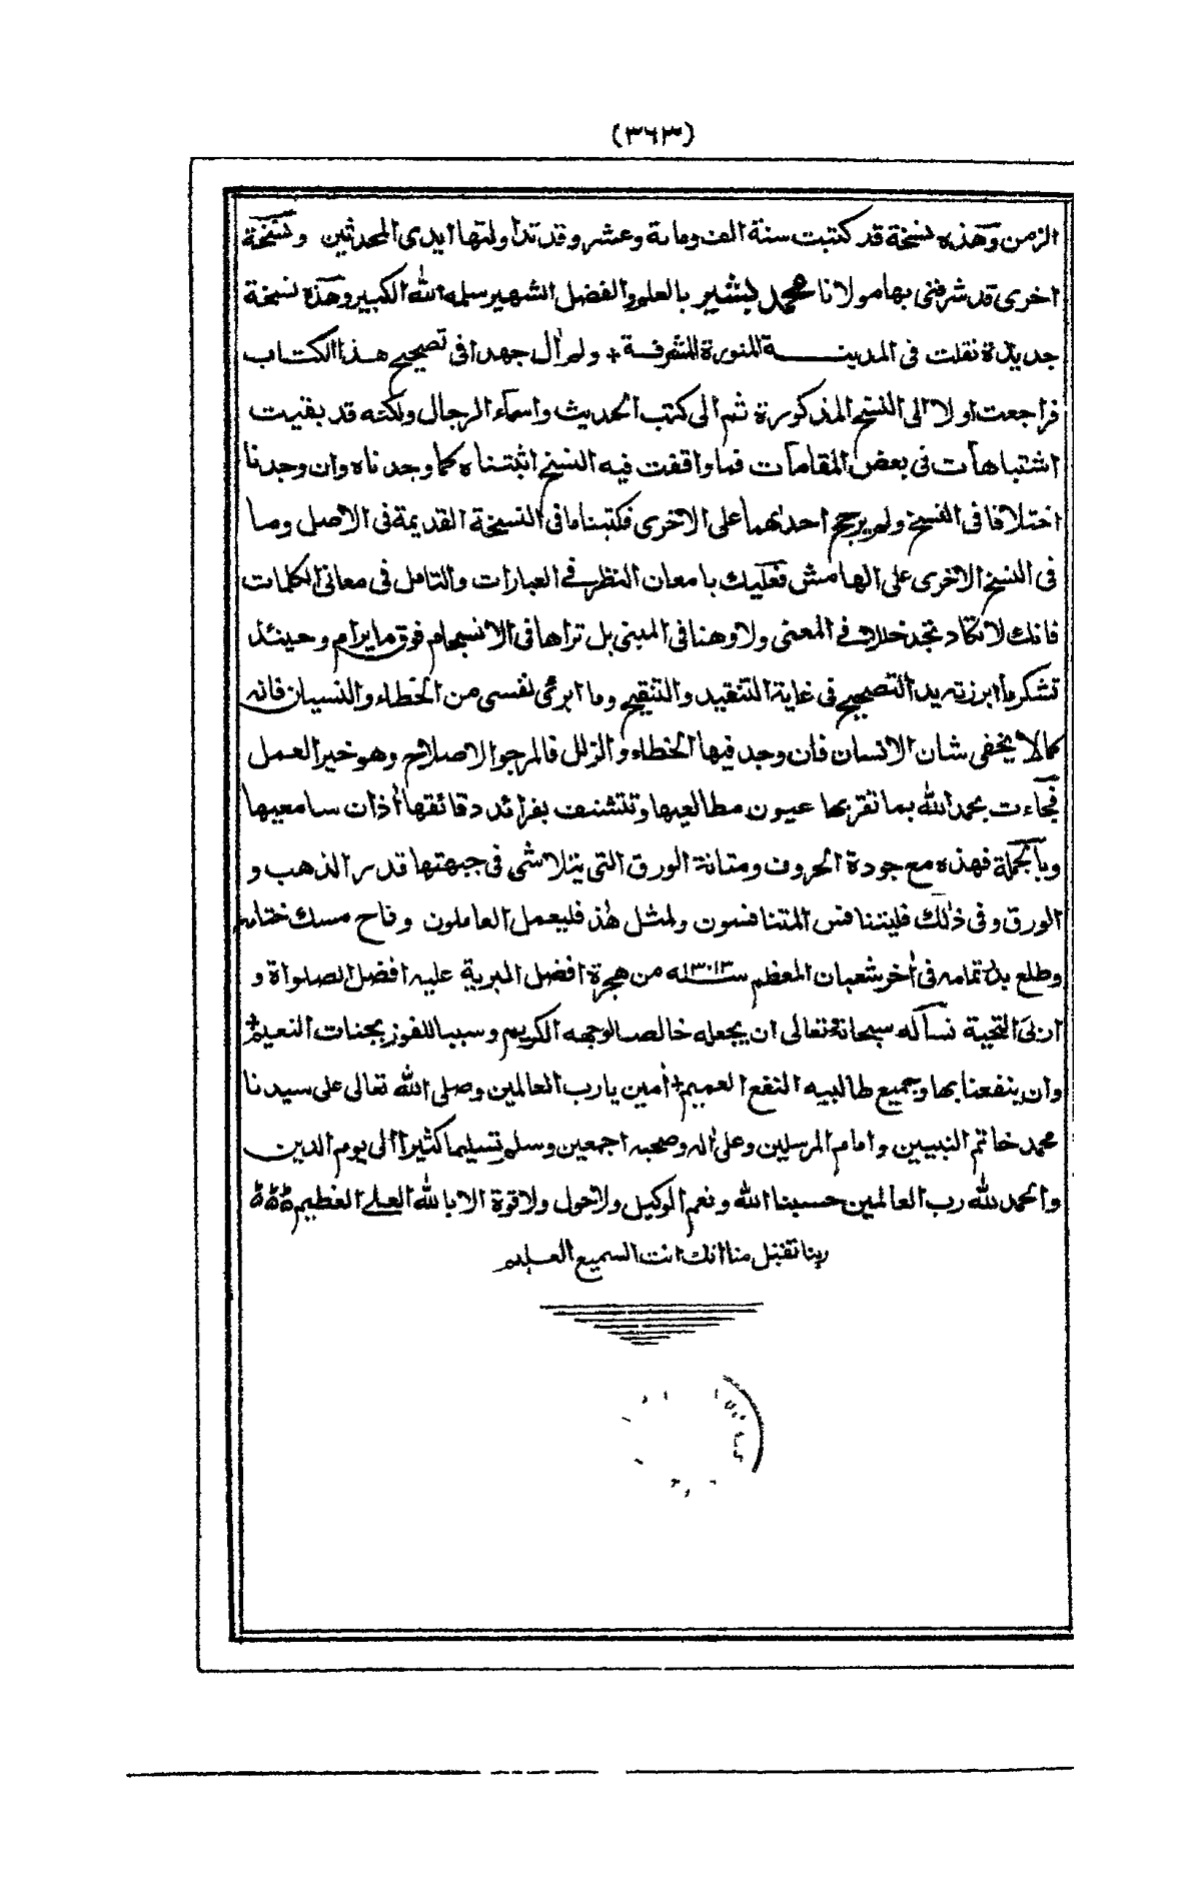 (٣٦٣)
الزمن وهذه نسخة قد كتبت سنة الف ومائة وعشر وقد تداولتها ايدى المحدثين ونسخة
اخرى قد شرفنى بها مولانا محمد بشير بالعلم والفضل الشهير سلمه الله الكبير وهذه نسخة
جديدة نقلت فى المدينة المنورة المشرفة + ولم ال جهدا فى تصحيح هذا الكتاب
فراجعت اولا الى النسخ المذكورة ثم الى كتب الحديث واسماء الرجال ولكنه قد بقيت
اشتباهات فى بعض المقامات فما وافقت فيه النسخ اثبتناه كما وجدناه وان وجدنا
اختلافا فى النسخ ولم يرجح احداهما على الاخرى فكتبنا ما فى النسخة القديمة فى الاصل وما
فى النسخ الاخرى على الهامش فعليك بامعان النظر فے العبارات والتامل فى معانى الكلمات
فانك لا تكاد تجد خللا فے المعنى ولا وهنا فى المبنى بل تراها فى الانسجام فوق ما يرام وحينئذ
تشكر ما ابرزته يد التصحيح فى غاية التنقيد والتنقيح وما ابرئ نفسى من الخطاء والنسيان فانه
كما لا يخفى شان الانسان فان وجد فيها الخطاء والزلل فالمرجو الاصلاح وهو خير العمل
فجاءت بحمد الله بما تقر بها عيون مطالعيها وتتشنف بفرائد دقائقها أذان سامعيها
وبالجملة فهذه مع جودة الحروف ومتانة الورق التى يتلاشى فى جبهتها قدر الذهب و
الورق وفى ذلك فليتنافس المتنافسون ولمثل هذا فليعمل العاملون وفاح مسك ختامه
وطلع بدر تمامه فى أخر شعبان المعظم سنه ١٣٠٣ من هجرة افضل البرية عليه افضل الصلواة و
ازكى التحية نسأله سبحانه تعالى ان يجعله خالصا لوجهه الكريم وسببا للفوز بجنات النعيم +
وان ينفعنا بها وجميع طالبيه النفع العميم + أمين يارب العالمين وصلى الله تعالى على سيدنا
محمد خاتم النبيين وامام المرسلين وعلى أله وصحبه اجمعين وسلم تسليما كثيرا الى يوم الدين
والحمد لله رب العالمين حسبنا الله ونعم الوكيل ولا حول ولا قوة الا بالله العلے العظيم
ربنا تقبل منا انك انت السميع العليم